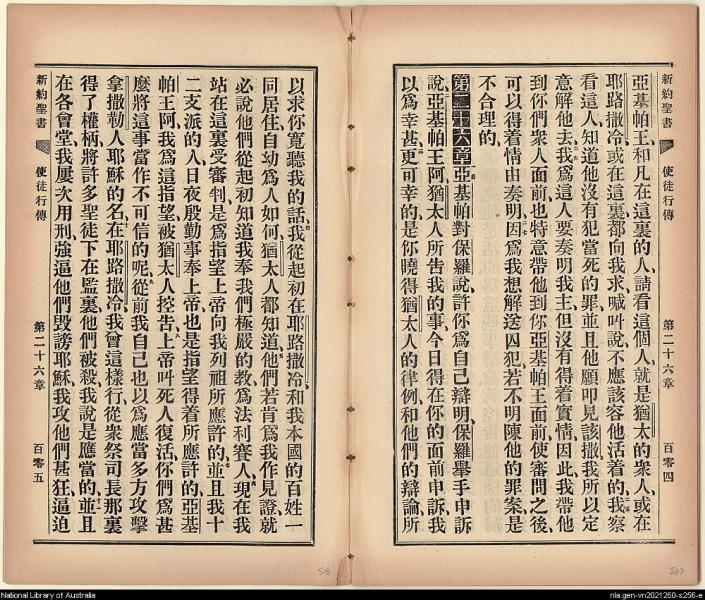 新約聖書 使徒行傳 第二十六章 百零四
亞基帕王、和凡在這裏的人、請看這個人、就是猶太的衆人、或在
耶路撒冷、或在這裏、都向我求喊叫說、不應該容他活着的、我察
看這人、知道他沒有犯當死的罪、並且他願叩見該撒、我所以定
意解他去、我爲這人要奏明我主、但沒有得着實情、因此我帶他
到你們衆人面前、也特意帶他到你亞基帕王面前、使審問之後、
可以得着情由奏明、因爲我想解送囚犯、若不明陳他的罪案、是
不合理的、
第二十六章亞基帕對保羅說、許你爲自己辯明、保羅舉手申訴
說、亞基帕王阿、猶太人所告我的事、今日得在你的面前申訴、我
以爲幸甚、更可幸的、是你曉得猶太人的律例、和他們的辯論、所
以求你寬聽我的話、我從起初在耶路撒冷、和我本國的百姓一
同居住、自幼爲人如何、猶太人都知道、他們若肯爲我作見證、就
必說他們從起初知道我奉我們極嚴的敎、爲法利賽人、現在我
站在這裏受審判、是爲指望上帝向我列祖所應許的、並且我十
二支派的人、日夜殷勤事奉上帝、也是指望得着所應許的、亞基
帕王阿、我爲這指望被猶太人控告、上帝叫死人復活、你們爲甚
麼將這事當作不可信的呢、從前我自己也以爲應當多方攻擊
拿撒勒人耶穌的名、在耶路撒冷我曾這樣行、從衆祭司長那裏
得了權柄、將許多聖徒下在監裏、他們被殺、我說是應當的、並且
在各會堂、我屢次用刑、強逼他們毀謗耶穌、我攻他們甚狂、逼迫
新約聖書 使徒行傳 第二十六章 百零五
508
507
National Library of Australia
nla.gen-vn2021260-s256-e